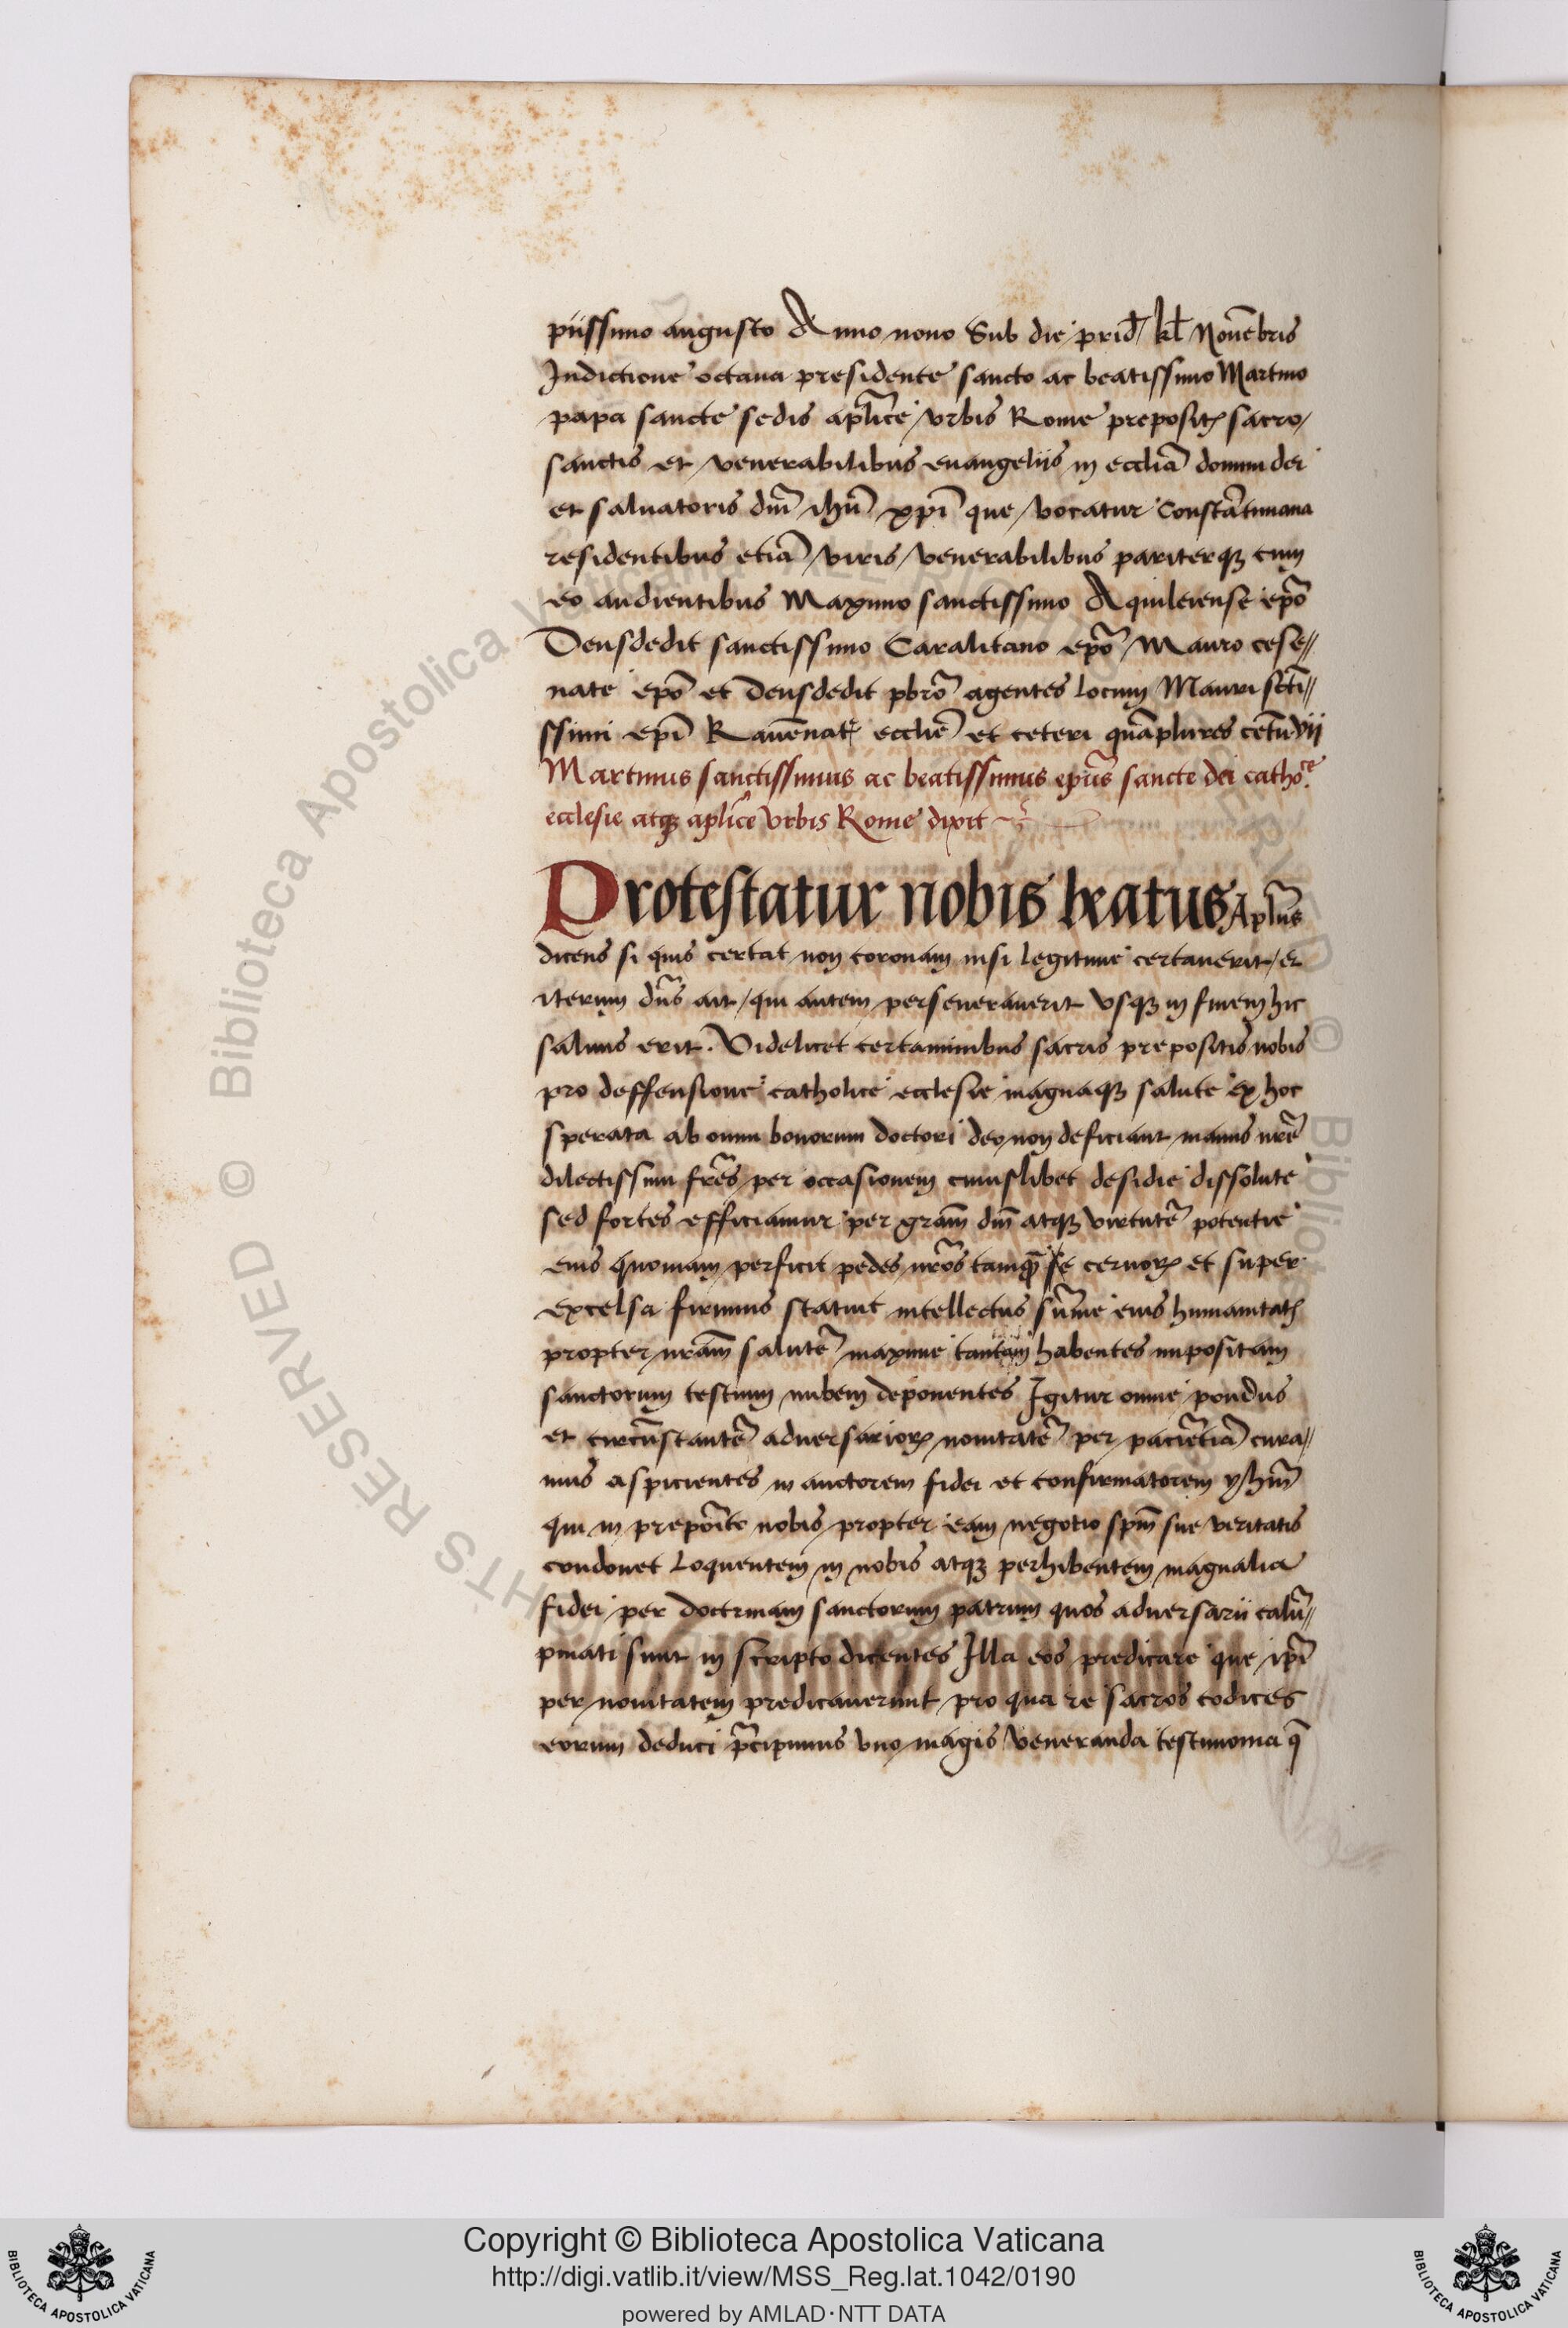 piissimo augusto Anno nono Sub die prid̄ kł Novēbris
Indictione octava presidente sancto ac beatissimo Martino
papa sancte sedis aplīce urbis Rome preposit sacro/
sanctis et venerabilibus euangeliis in eccliā domini dei
et salvatoris dn̄i ihū xpī que vocatur Constātiniana
residentibus etiā viris venerabilibus pariterqȝ cum
eo audientibus Maximo sanctissimo Aquileiense epō
Deusdedit sanctissimo Caralitano epō Mauro cese//
nate epō et Deusdedit pbrō agentes locum Mauri sctī//
ssimi epī Ravēnat ecclie et ceteri quāplures cetū vii
Martinus sanctissimus ac beatissimus epūs sancte dei cathoce
ecclesie atqȝ aplīce Urbis Rome dixit
Protestatur nobis beatus Aplūs
dicens si quis certat non coronam nisi legitime certaverit / et
iterum dn̄s ait / qui autem perseveraverit usqȝ in finem hic
salvus erit. Videlicet certaminibus sacris prepositis nobis
pro deffensione catholice ecclesie magnaqȝ salute ex hoc
sperata ab omni bonorum doctori deo non deficiant manus nrē
dilectissimi frēs per occasionem cuiuslibet desidie dissolute
sed fortes efficiamur per grām dn̄i atqȝ virtutē potentie
eius quoniam perficit pedes nrōs tamq̄ ceruoꝝ et super
excelsa firmius statuit intellectus sūme eius humanitatꝭ
propter nrām salutē maxime tantam habentes impositam
sanctorum testium nubem deponentes Igitur omne pondus
et circūstantē adversarioꝝ novitatē per paciētiā cura//
mus aspicientes in auctorem fidei et confirmatorem yhm̄
qui in prepōito nobis propter eam negotio spm̄ sue veritatis
condonet loquentem in nobis atqȝ perhibentem magnalia
fidei per doctrinam sanctorum patrum quos adversarii calū//
pniati sunt in scripto dicentes Illa eos predicare que ipī
per novitatem predicaverunt pro qua re sacros codices
eorum deduci p̄cipimus uno magis veneranda testimonia q̄
© Biblioteca Apostolica Vaticana
Copyright © Biblioteca Apostolica Vaticana
http://digi.vatlib.it/view/MSS_Reg.lat.1042/0190
powered by AMLAD·NTT DATA
BIBLIOTECA APOSTOLICA VATICANA
BIBLIOTECA APOSTOLICA VATICANA